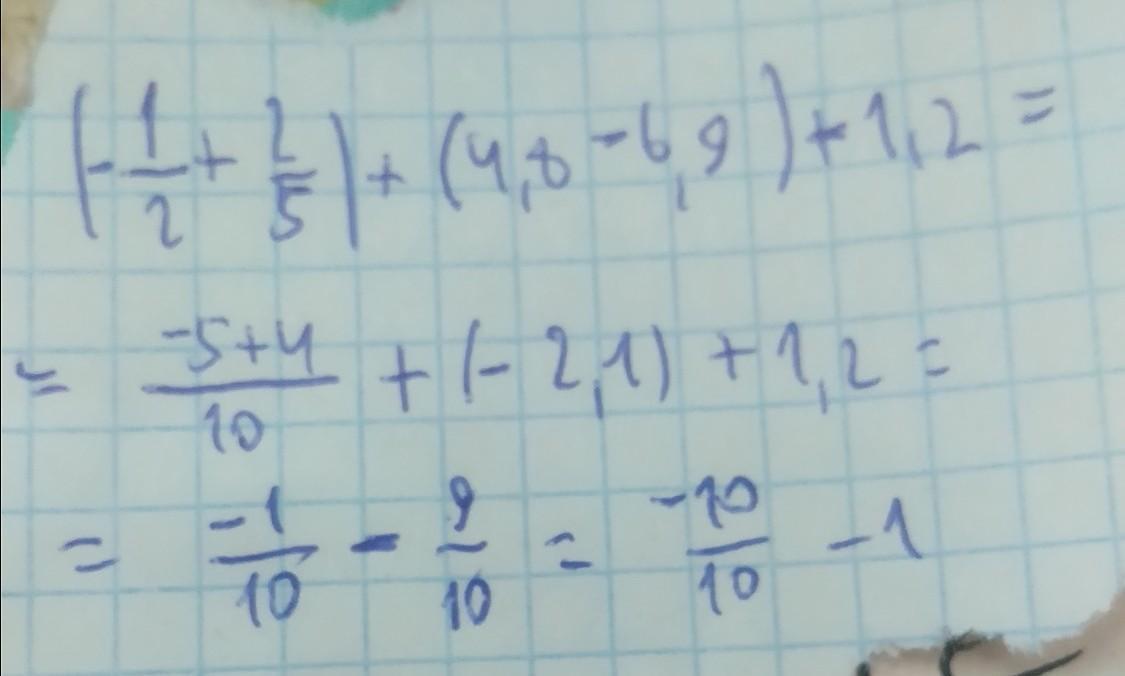 (-1/2 + 2/5) + (4,8 - 6,9) + 1,2 =
= -5+4/10 + (-2,1) + 1,2 =
= -1/10 - 9/10 = -10/10 -1